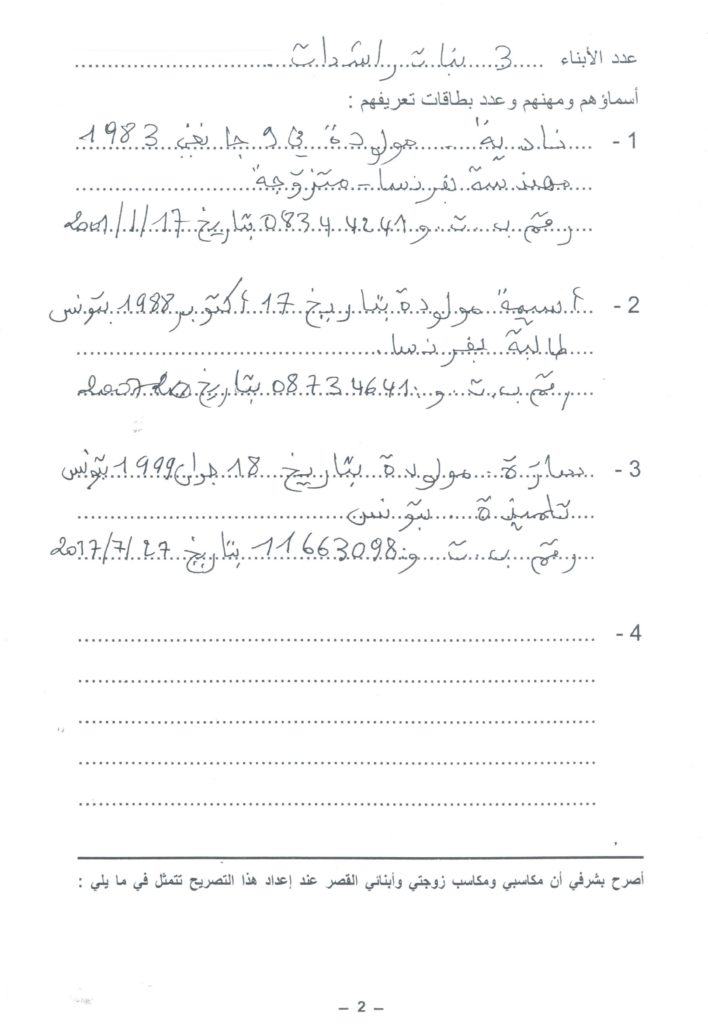 عدد الأبناء ..... 3 بنات راشدات
أسماؤهم ومهنهم وعدد بطاقات تعريفهم :
1 - نادية مولودة في 9 جانفي 1983
مهندسة بفرنسا - متزوجة
رقم ب. ت. و 08344241 بتاريخ 2001/1/17
2 - أسيمة مولودة بتاريخ 17 أكتوبر 1988 بتونس
طالبة بفرنسا.
رقم ب. ت. و. 08734641 بتاريخ
3 - سارة مولودة بتاريخ 18 جوان 1999 بتونس
تلميذة بتونس
رقم ب. ت. و. 11663098 بتاريخ 2017/7/27
4 -
أصرح بشرفي أن مكاسبي ومكاسب زوجتي وأبنائي القصر عند إعداد هذا التصريح تتمثل في ما يلي :
– 2 –